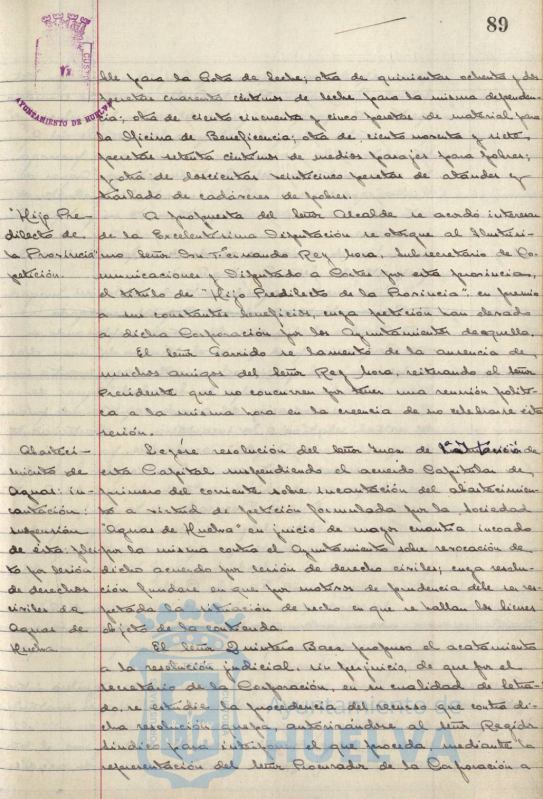 89
AYUNTAMIENTO DE HUELVA
ble para la Gota de leche; otra de quinientas ochenta y dos
pesetas cuarenta céntimos de leche para la misma dependen-
cia; otra de ciento cincuenta y cinco pesetas de material para
la Oficina de Beneficencia; otra de ciento noventa y siete
pesetas setenta céntimos de medios pasajes para pobres;
y otra de doscientas veinticinco pesetas de ataudes y
traslado de cadáveres de pobres.
"Hijo Pre-
dilecto de
la Provincia"
petición.
A propuesta del Señor Alcalde se acordó interesar
de la Excelentísima Diputación se otorgue al Ilustrísi-
mo Señor Don Fernando Rey Mora, Subsecretario de Co-
municaciones y Diputado a Cortes por esta provincia,
el título de "Hijo Predilecto de la Provincia" en premio
a sus constantes beneficios, cuya petición han elevado
a dicha Corporación por los Ayuntamientos de aquella.
El Señor Garrido se lamentó de la ausencia de
muchos amigos del Señor Rey Mora, reiterando el Señor
Presidente que no concurren por tener una reunión políti-
ca a la misma hora en la creencia de no celebrarse esta
sesión.
Abasteci-
miento de
Aguas: in-
cautación:
suspensión
de ésta: plei-
to por lesión
de derechos
civiles de
Aguas de
Huelva
Leyóse resolución del Señor Juez de de
esta Capital suspendiendo el acuerdo Capitular de
primero del corriente sobre incautación del abastecimien-
to a virtud de petición formulada por la Sociedad
"Aguas de Huelva" en juicio de mayor cuantía incoado
por la misma contra el Ayuntamiento sobre revocación de
dicho acuerdo por lesión de derecho civiles; cuya resolu-
ción fundase en que por motivos de prudencia debe ser res-
petada la situación de hecho en que se hallan los bienes
objeto de la contienda.
El Señor Quintero Baez propuso el acatamiento
a la resolución judicial, sin perjuicio, de que por el
Secretario de la Corporación, en su cualidad de letra-
do, se estudie la procedencia del recurso que contra di-
cha resolución quepa, autorizándose al Señor Regidor
Síndico para interponer el que proceda, mediante la
representación del Señor Procurador de la Corporación a
Ayuntamiento de
HUELVA